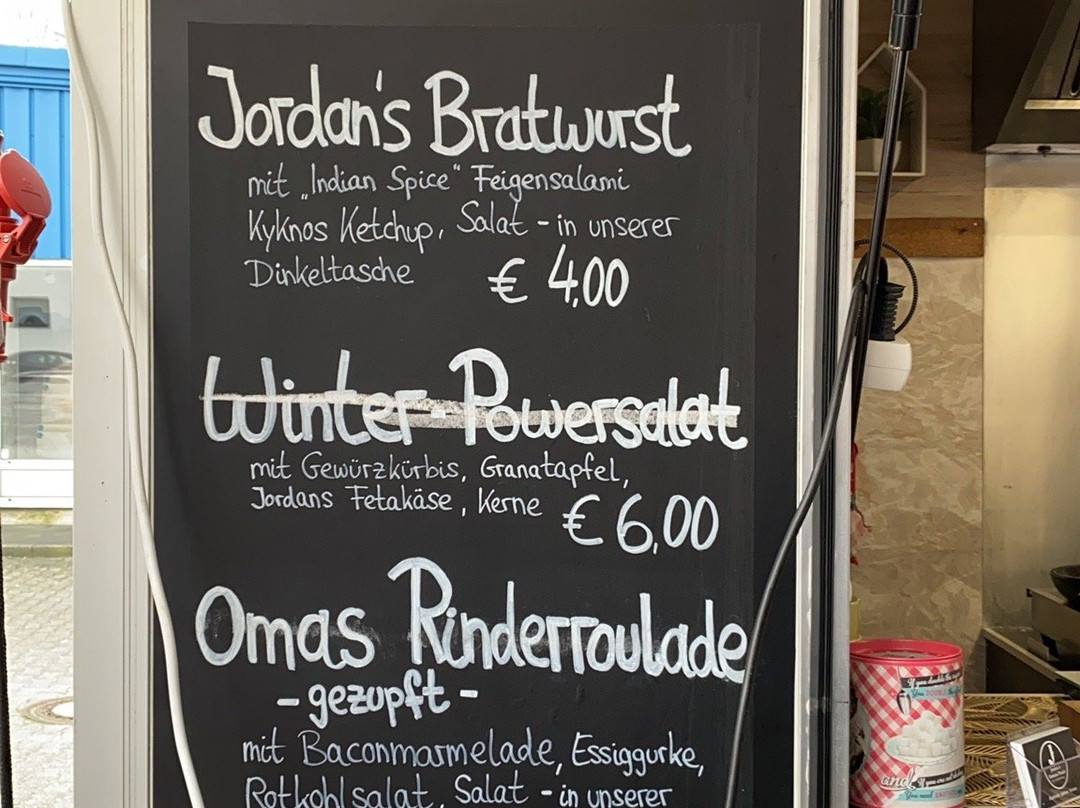 Jordan's Bratwurst
mit „Indian Spice" Feigensalami
Kyknos Ketchup, Salat - in unserer
Dinkeltasche € 4,00
Winter-Powersalat
mit Gewürzkürbis, Granatapfel,
Jordans Fetakäse, Kerne € 6,00
Omas Rinderroulade
- gezupft -
mit Baconmarmelade, Essiggurke,
Rotkohlsalat, Salat - in unserer
and